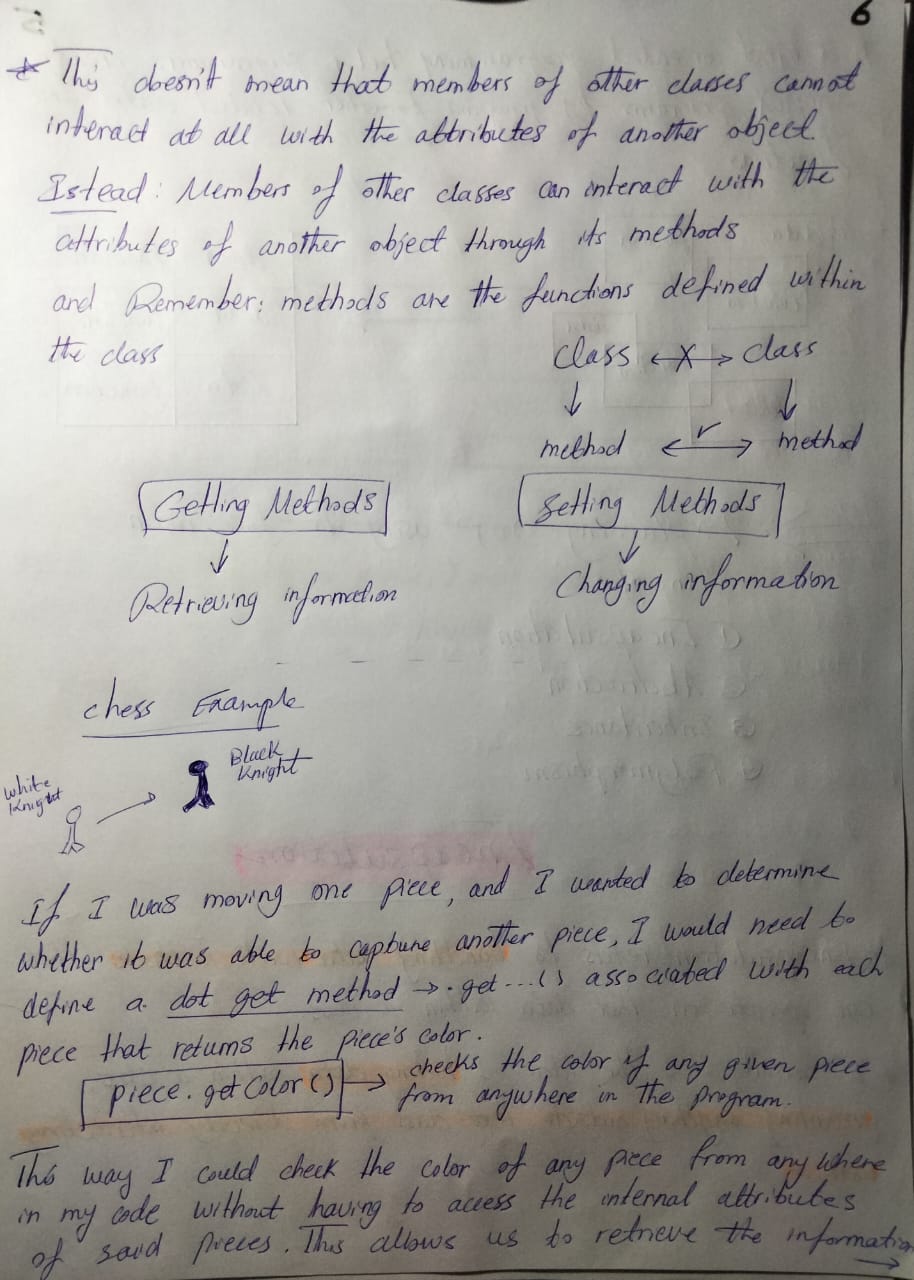 6
* This doesn't mean that members of other classes cannot
interact at all with the attributes of another object
Istead: Members of other classes can interact with the
attributes of another object through its methods
and Remember: methods are the functions defined within
the class
Class <-X-> Class
↓ ↓
method <-r-> method
Getting Methods Setting Methods
↓ ↓
Retrieving information Changing information
chess Example
White Knight → Black Knight
If I was moving one piece, and I wanted to determine
whether it was able to capture another piece, I would need to
define a dot get method → .get...() associated with each
piece that returns the piece's color.
piece.getColor() → checks the color of any given piece
from anywhere in the program.
This way I could check the color of any piece from anywhere
in my code without having to access the internal attributes
of said pieces. This allows us to retrieve the information
→